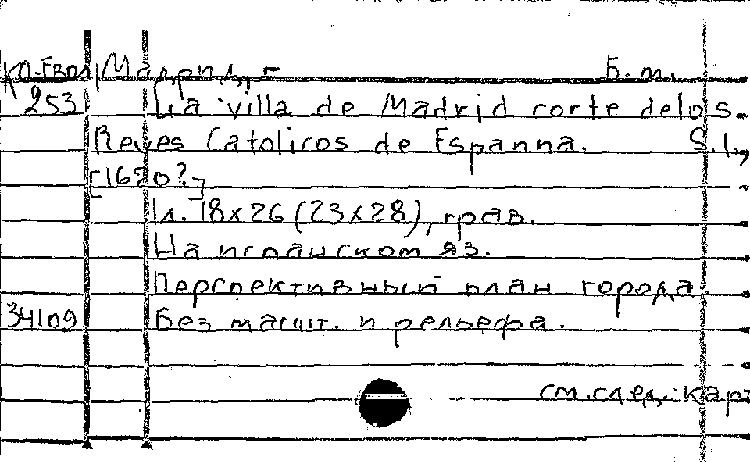 Ко-Евоп Мадрид, - Б. м.
253 La villa de Madrid corte delos
Reyes Catolicos de Espanna. S.l.,
[1620?]
1л. 18х26 (23х28), грав.
На испанском яз.
Перспективный план города.
34109 Без масшт. и рельефа.
см. след. карт